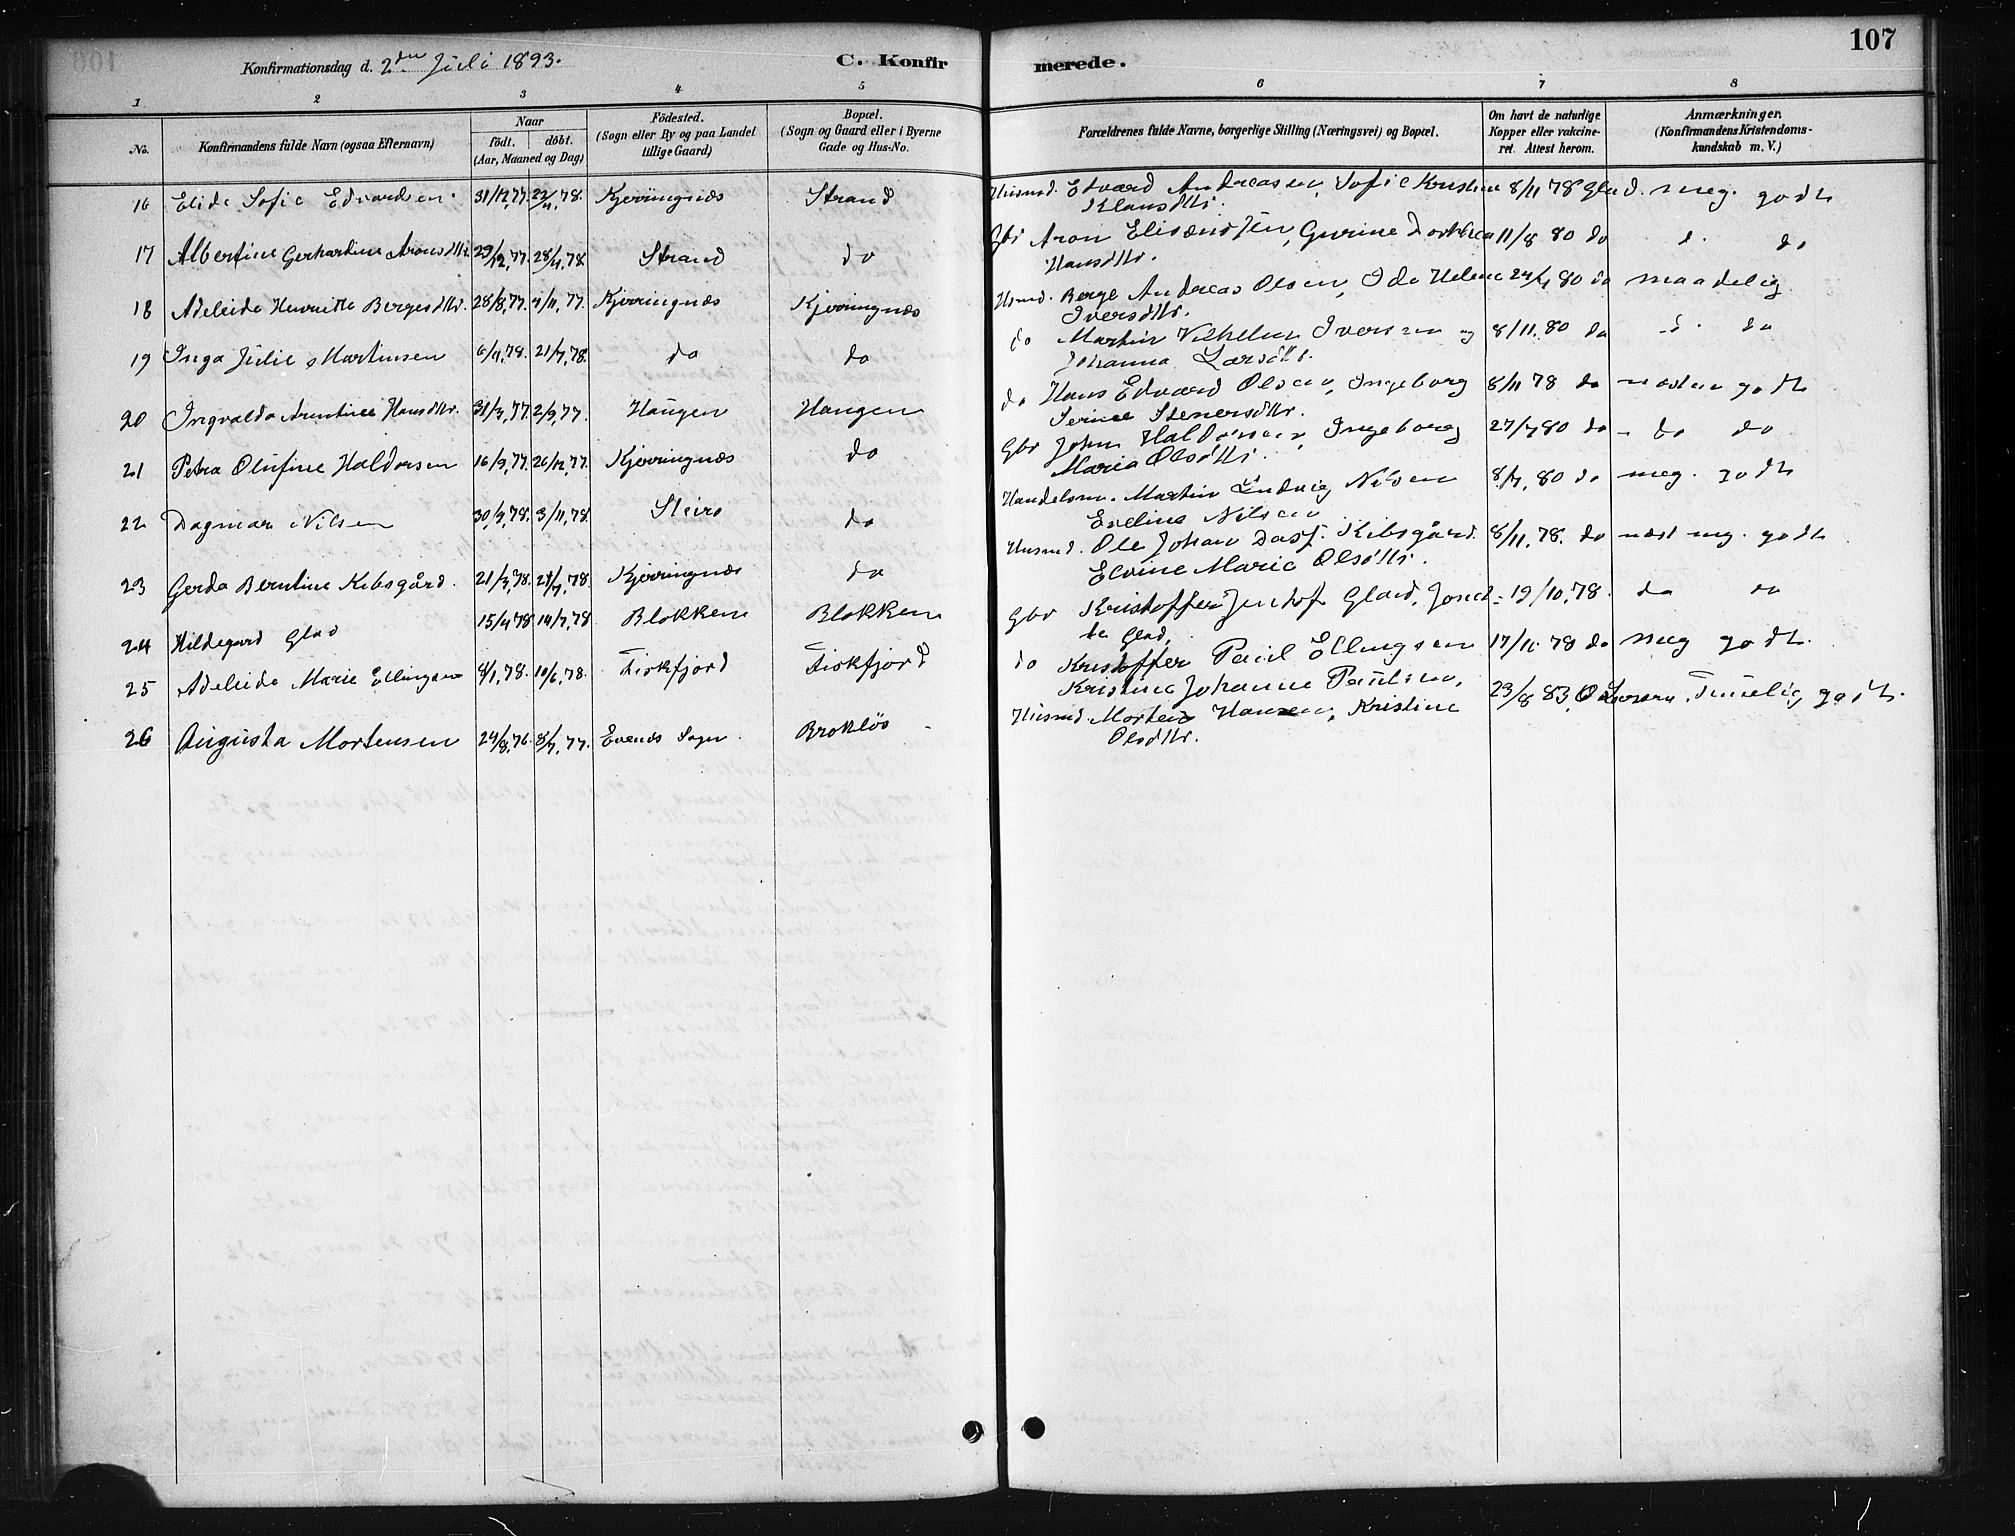 107
Konfirmationsdag d. 2den Juli 1893.
C. Konfirmerede.
1 2 3 4 5 6 7 8
No.
Konfirmandens fulde Navn (ogsaa Efternavn)
Naar
födt. döbt.
(Aar, Maaned og Dag)
Födested.
(Sogn eller By og paa Landet
tillige Gaard)
Bopæl.
(Sogn og Gaard eller i Byerne
Gade og Hus-No.
Forældrenes fulde Navne, borgerlige Stilling (Næringsvei) og Bopæl.
Om havt de naturlige
Kopper eller vakcine-
ret. Attest herom.
Anmærkninger.
(Konfirmandens Kristendoms-
kundskab m. V.)
16 Elide Sofie Edvardsen. 31/12,77. 22/4,78. Kjerringnæs Strand Husmd. Edvard Andreasen, Sofie Kristine 8/11 78 Glad. meg. godt
Klausdttr.
17 Albertine Gerhartine Aronsdttr. 29/12,77. 28/4,78 Strand do Gbr Aron Elisæussen, Gurine Dorthea 11/8 80 do d. do
Hansdttr.
18 Adeleide Henriette Bergesdttr. 28/8,77. 4/11,77. Kjerringnæs Kjerringnæs Husmd. Berge Andreas Olsen, Ida Helene 24/4 80 do maadelig
Iversdttr.
19 Inga Julie Martinsen 6/4,78. 21/7,78. do do do Martin Vilhelm Iversen og 8/11.80 do d. do
Johanna Larsdttr.
20 Ingvalda Arntine Hansdttr. 31/3,77. 2/9,77. Haugen Haugen do Hans Edvard Olsen, Ingeborg 8/11 78 do næsten godt
Serine Stenersdttr.
21 Petra Olufine Haldorsen 16/9,77. 26/12,77. Kjerringnæs do Gbr John Haldorsen, Ingeborg 27/7 80 do - do do
Maria Olsdttr.
22 Dagmar Nilsen 30/9,78. 3/11,78. Steiro do Handelsm. Martin Ludvig Nilsen 8/7, 80 do meg. godt
Eveline Nilsen
23 Gerda Berntine Kibsgård. 21/3,78. 21/7,78. Kjerringnæs do Husmd. Ole Johan Kibsgård. 8/11, 78. do næst meg. godt
Elvine Marie Olsdttr.
24 Hildegard Glad 15/4 78 14/7,78 Blokken Blokken Gbr Kristoffer Jentoft Glad, 19/10,78. do do
Glad,
25 Adeleide Marie Ellingsen 8/1,78. 10/6,78. Fiskfjord Fiskfjord do Kristoffer Paul Ellingsen 17/11 78 do meg godt.
Kristine Johanne Paulsen,
26 Augusta Mortensen 24/8,76. 8/7,77. Evenæs Sogn. Brokløs - Husmd. Morten Hansen, Kristine 23/8 83, O Larsen. Temelig godt.
Olsdttr.